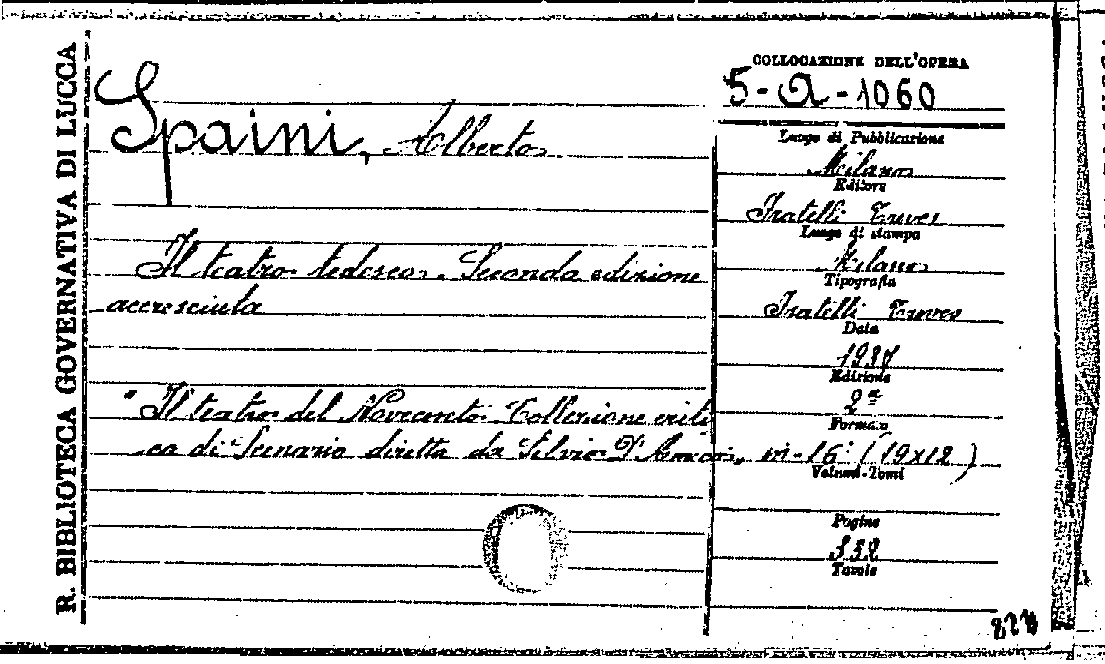 R. BIBLIOTECA GOVERNATIVA DI LUCCA
COLLOCAZIONE DELL'OPERA
5-A-1060
Spaini, Alberto
Luogo di Pubblicazione
Milano
Editore
Fratelli Treves
Luogo di stampa
Milano
Tipografia
Fratelli Treves
Data
1937
Edizione
2ª
Formato
Il teatro tedesco. Seconda edizione
accresciuta
"Il teatro del Novecento. Collezione criti
ca di Scenario diretta da Silvio D'Amico, in-16° (19x12)
Volumi-Tomi
Pagine
332
Tavole